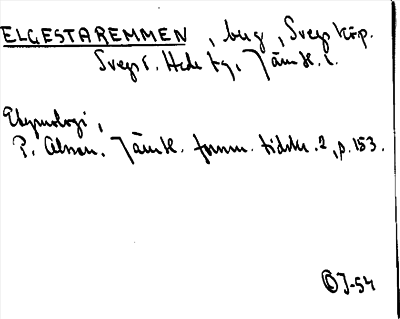 ELGESTAREMMEN, berg, Svegs köp.
Svegs s. Hede tg, Jämtl. l.
Etymologi,
P. Olsson. Jämtl. fornm. tidskr. 2, p. 153.
J-54